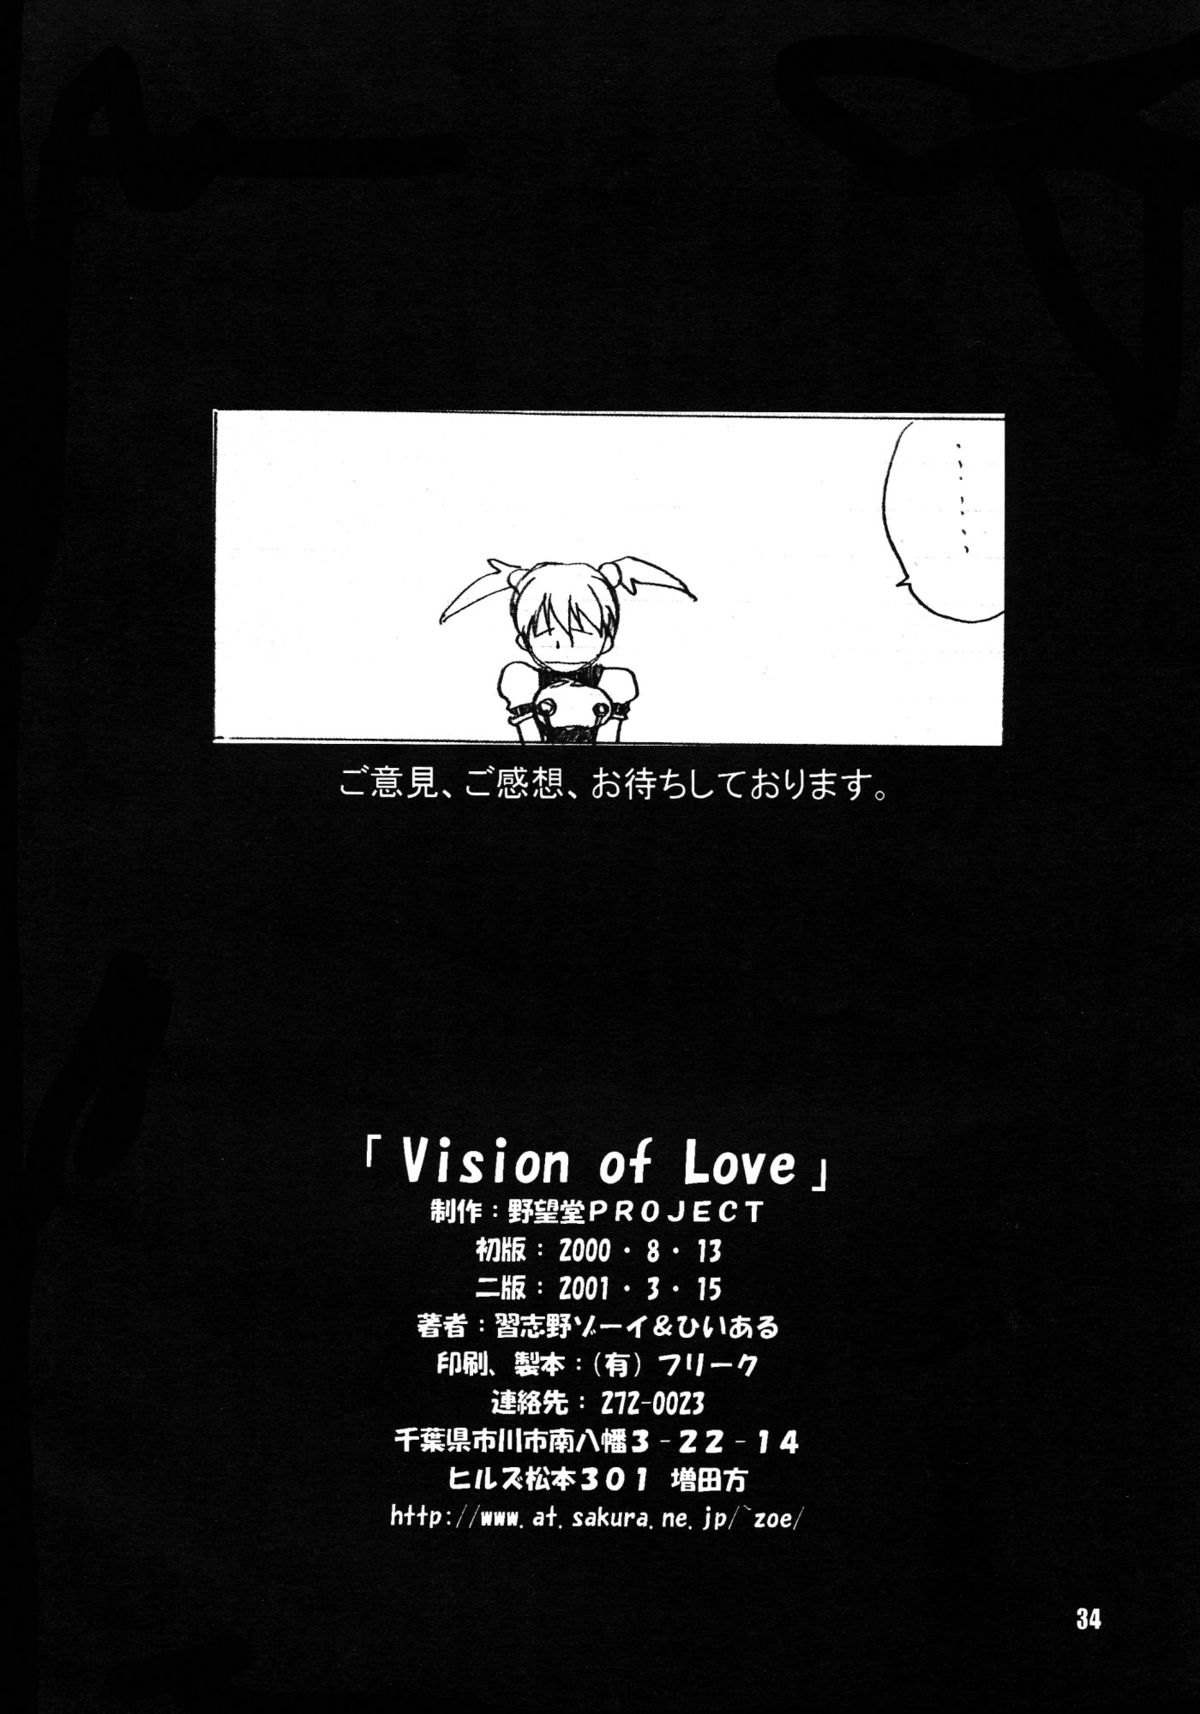 ………
ご意見、ご感想、お待ちしております。
「Vision of Love」
制作：野望堂PROJECT
初版：2000・8・13
二版：2001・3・15
著者：習志野ゾーイ＆ひいある
印刷、製本：（有）フリーク
連絡先：272-0023
千葉県市川市南八幡3-22-14
ヒルズ松本301 増田方
http://www.at.sakura.ne.jp/~zoe/
34